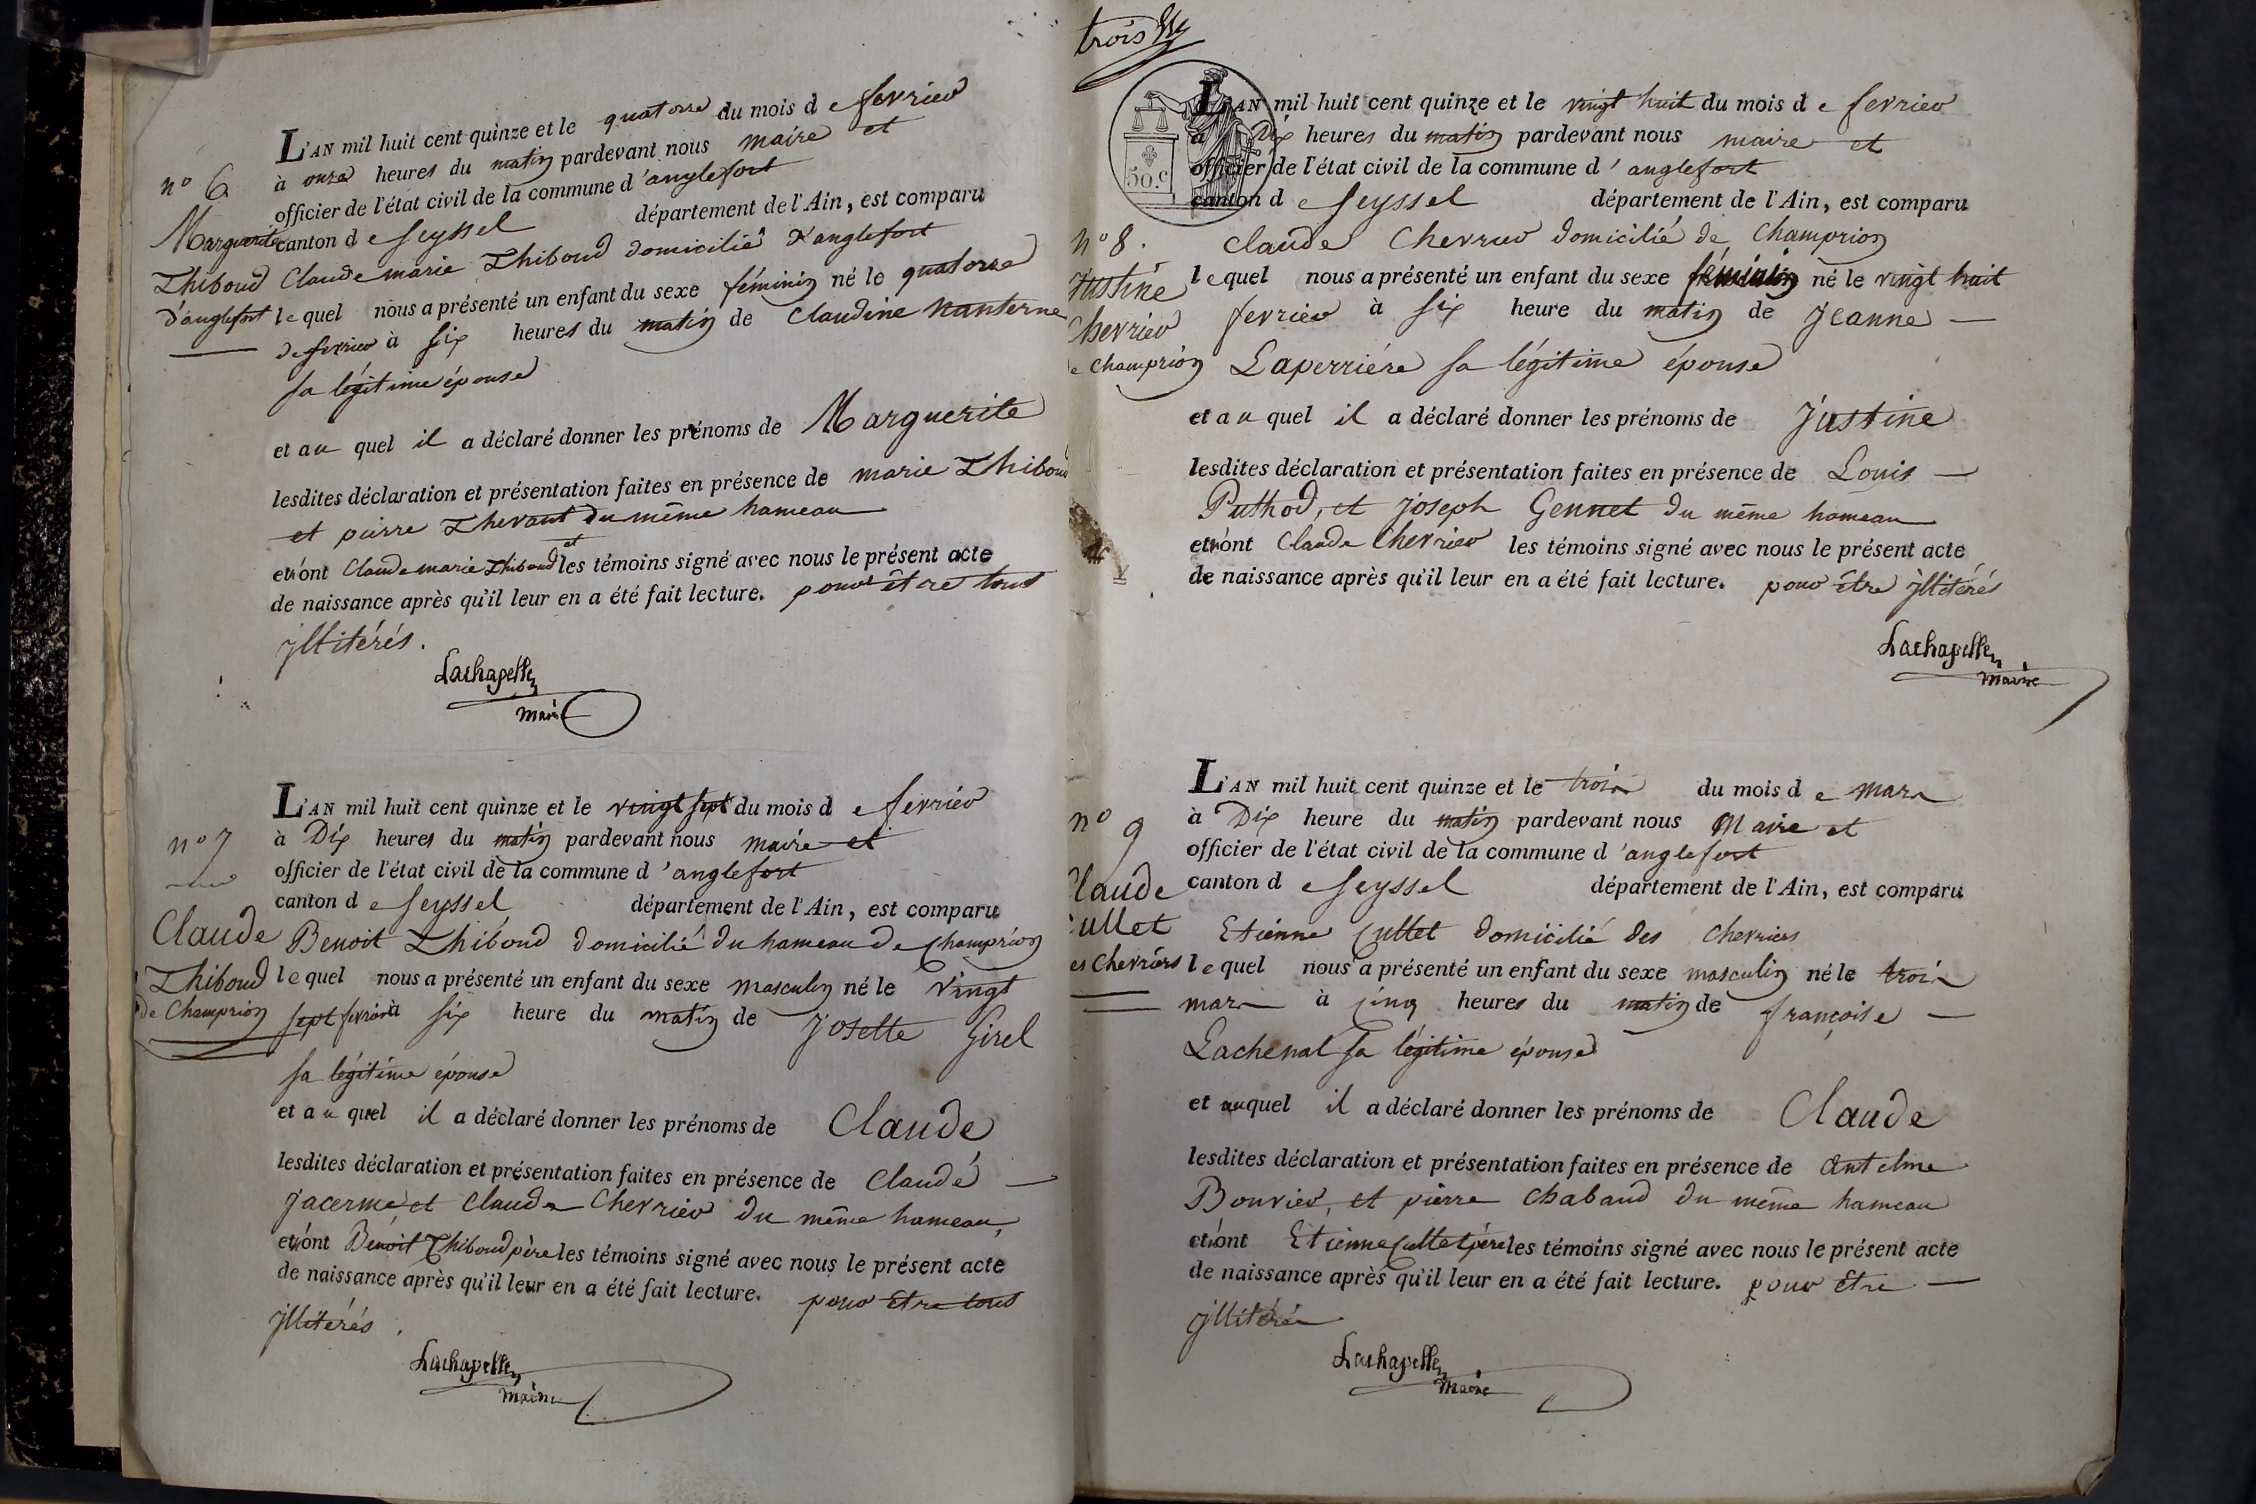 L'AN mil huit cent quinze et le quatorze du mois de fevrier
à onze heures du matin pardevant nous maire et
officier de l'état civil de la commune d'anglefort
canton de Seyssel département de l'Ain, est comparu
Claude marie Thiboud domicilié d'anglefort
lequel nous a présenté un enfant du sexe féminin né le quatorze
de fevrier à six heures du matin de Claudine Nanterne
sa légitime épouse
et auquel il a déclaré donner les prénoms de Marguerite
lesdites déclaration et présentation faites en présence de marie Thiboud
et pierre Thevant du même hameau
et n'ont Claude marie Thiboud et les témoins signé avec nous le présent acte
de naissance après qu'il leur en a été fait lecture. pour être tous
jllitérés.
Lachapelle
maire
n° 6
Marguerite
Thiboud
d'anglefort
L'AN mil huit cent quinze et le vingt sept du mois de fevrier
à Dix heures du matin pardevant nous maire et
officier de l'état civil de la commune d'anglefort
canton de Seyssel département de l'Ain, est comparu
Benoit Thiboud domicilié du hameau de Champrion
lequel nous a présenté un enfant du sexe masculin né le vingt
sept fevrier à six heure du matin de Josette Girel
sa légitime épouse
et auquel il a déclaré donner les prénoms de Claude
lesdites déclaration et présentation faites en présence de Claude
jacerme et Claude Chevrier du même hameau,
et n'ont Benoit Thiboud père les témoins signé avec nous le présent acte
de naissance après qu'il leur en a été fait lecture. pour Etre tous
jllitérés.
Lachapelle
maire
n° 7
Claude
Thiboud
de Champrion
trois
50.c
L'AN mil huit cent quinze et le vingt huit du mois de fevrier
à Dix heures du matin pardevant nous maire et
officier de l'état civil de la commune d'anglefort
canton de Seyssel département de l'Ain, est comparu
Claude Chevrier domicilié de Champrion
lequel nous a présenté un enfant du sexe féminin né le vingt huit
fevrier à six heure du matin de Jeanne
Laperriére sa légitime épouse
et auquel il a déclaré donner les prénoms de Justine
lesdites déclaration et présentation faites en présence de Louis
Puthod, et joseph Gennet du même hameau
et n'ont Claude Chevrier les témoins signé avec nous le présent acte
de naissance après qu'il leur en a été fait lecture. pour être jllitérés
Lachapelle
maire
n° 8.
Justine
Chevrier
e Champrion
L'AN mil huit cent quinze et le trois du mois de mars
à Dix heure du matin pardevant nous Maire et
officier de l'état civil de la commune d'anglefort
canton de Seyssel département de l'Ain, est comparu
Etienne Cullet domicilié des Chevriers
lequel nous a présenté un enfant du sexe masculin né le trois
mars à cinq heures du matin de françoise
Lachenal sa légitime épouse
et auquel il a déclaré donner les prénoms de Claude
lesdites déclaration et présentation faites en présence de Antelme
Bouvier, et pierre Chabaud du même hameau
et n'ont Etienne Cullet père les témoins signé avec nous le présent acte
de naissance après qu'il leur en a été fait lecture. pour Etre
jllitérés
Lachapelle
maire
n° 9
Claude
Cullet
es Chevriers